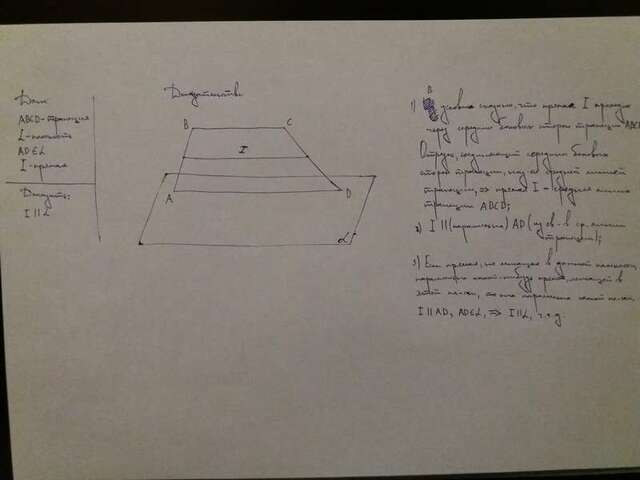 Дано:
ABCD-трапеция
L-плоскость
AD∈L
I-прямая
Доказать:
I || L
Доказательство
B
C
I
A
D
L
В
1) условии сказано, что прямая I проходит
через середины боковых сторон трапеции ABCD
Отрезок, соединяющий середины боковых
сторон трапеции, наз-ся средней линией
трапеции, ⇒ прямая I - средняя линия
трапеции ABCD;
2) I || (параллельна) AD (из св-в ср. линии
трапеции);
3) Если прямая, не лежащая в данной плоскости,
параллельна какой-нибудь прямой, лежащей в
этой пл-ти, то она параллельна самой пл-ти.
I || AD, AD∈L, ⇒ I || L, ч.т.д.